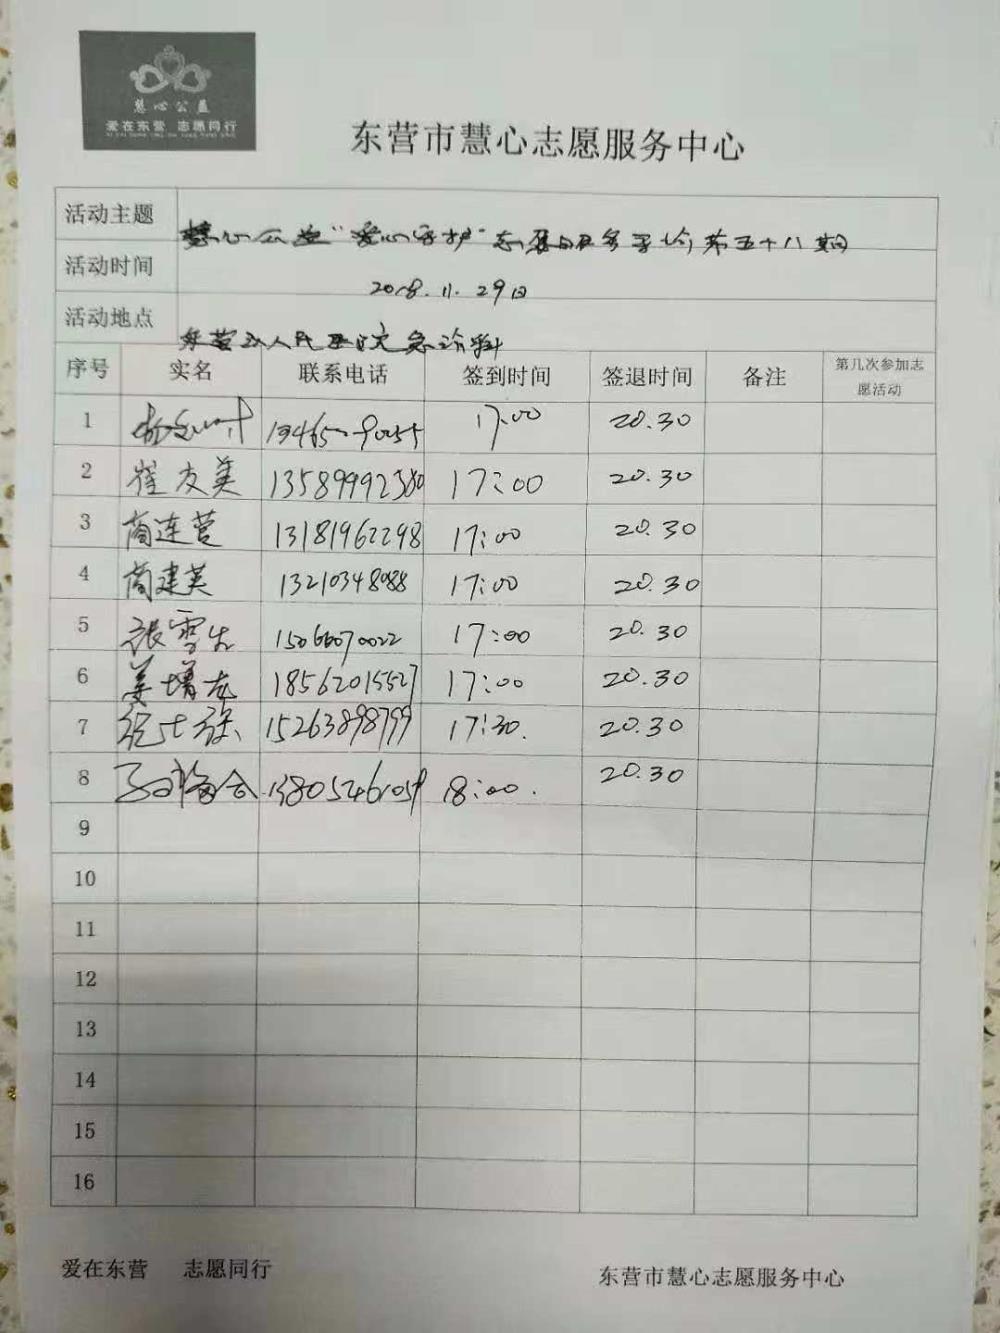 慧心公益
爱在东营 志愿同行
东营市慧心志愿服务中心
活动主题 慧心公益“爱心守护”志愿服务 第五十八期
活动时间 2018.11.29日
活动地点 东营市人民医院急诊科
序号 实名 联系电话 签到时间 签退时间 备注 第几次参加志愿活动
1 17:00 20.30
2 崔友美 13589992380 17:00 20.30
3 商连营 13181962298 17:00 20.30
4 商建英 13210348088 17:00 20.30
5 张雪生 15066070022 17:00 20.30
6 姜增龙 18562015527 17:00 20.30
7 15263898799 17:30. 20.30
8 18:00. 20.30
9
10
11
12
13
14
15
16
爱在东营 志愿同行 东营市慧心志愿服务中心